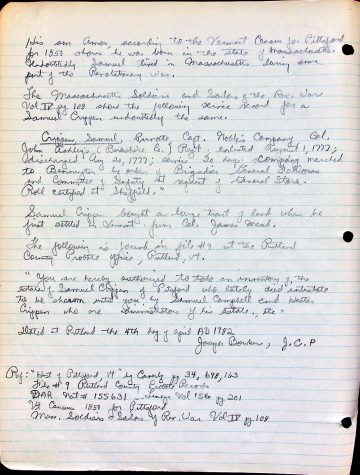 His son Amos according to the Vermont Census for Pittsford
for 1850 shows he was born in the state of Massachusetts.
Undoubtedly Samuel lived in Massachusetts during some
part of the Revolutionary War.
The Massachusetts Soldiers and Sailors of the Rev. War
Vol IV pg 108 show the following service record for a
Samuel Crippen undoubtedly the same.
Crippen, Samuel, Private, Capt. Noble's Company Col.
John Ashley's (Berkshire Co.) Regt, enlisted August 1, 1777;
discharged Aug 20, 1777; service 20 days. Company marched
to Bennington by order of Brigadier General
and Committee of Safety at request of General Stark.
Roll certified at Sheffield."
Samuel Crippen bought a large tract of land when he
first settled in Vermont from Col. James Mead.
The following is found in file #9 at the Rutland
County Probate office, Rutland, Vt.
"You are hereby authorized to take an inventory of the
estate of Samuel Crippen of Pitsford who lately died intestate
to be shewn unto you by Samuel Campbell and
Crippen who are administrators of his estate, etc"
Dated at Rutland the 4th day of April AD 1782
Joseph Bowker, J.C.P
Ref: "Hist of Pittsford, Vt" by Caverly pg 34, 698, 163
File #9 Rutland County Probate Records
DAR Nat # 155631 Vol 156 pg 201
Vt Census 1850 for Pittsford
Mass. Soldiers & Sailors of Rev. War Vol IV pg. 108